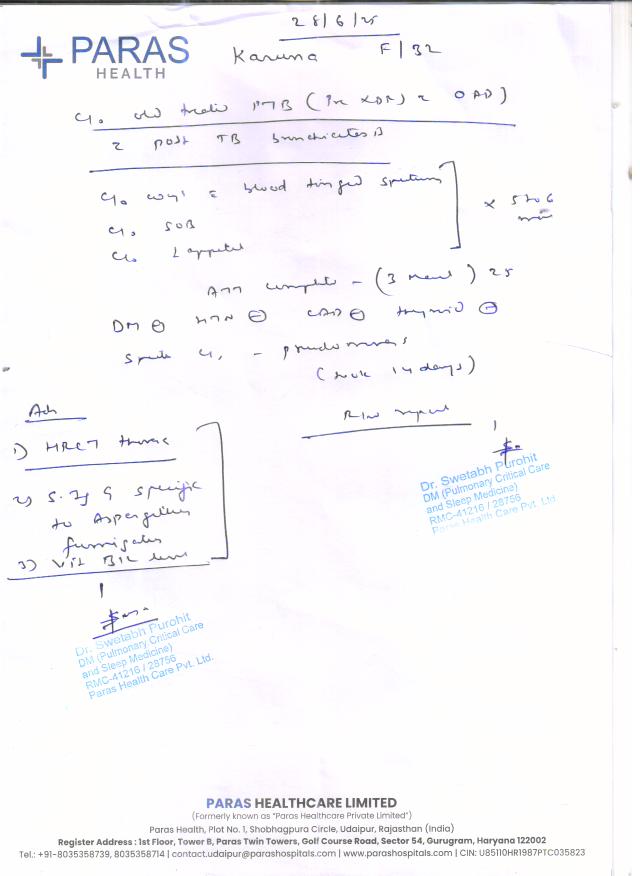 28/6/25
PARAS
HEALTH
Karuna F/32
C/o old treated PTB (Pre XDR) c OAD)
c post TB bronchiectasis
C/o cough c blood tinged sputum
C/o SOB
C/o ↓ appetite
x 5 to 6
ATT complete - (3 March) 25
DM ⊖ HTN ⊖ CAD ⊖ thyroid ⊖
Sputum C/s - pseudomonas
(took 14 days)
Adv
R/w report
1) HRCT thorax
2) S. Ig G specific
to Aspergillus
fumigatus
3) Vit B12 level
Dr. Swetabh Purohit
DM (Pulmonary Critical Care
and Sleep Medicine)
RMC-41216 / 28756
Paras Health Care Pvt. Ltd.
Dr. Swetabh Purohit
DM (Pulmonary Critical Care
and Sleep Medicine)
RMC-41216 / 28756
Paras Health Care Pvt. Ltd.
PARAS HEALTHCARE LIMITED
(Formerly known as "Paras Healthcare Private Limited")
Paras Health, Plot No. 1, Shobhagpura Circle, Udaipur, Rajasthan (India)
Register Address : 1st Floor, Tower B, Paras Twin Towers, Golf Course Road, Sector 54, Gurugram, Haryana 122002
Tel.: +91-8035358739, 8035358714 | contact.udaipur@parashospitals.com | www.parashospitals.com | CIN: U85110HR1987PTC035823